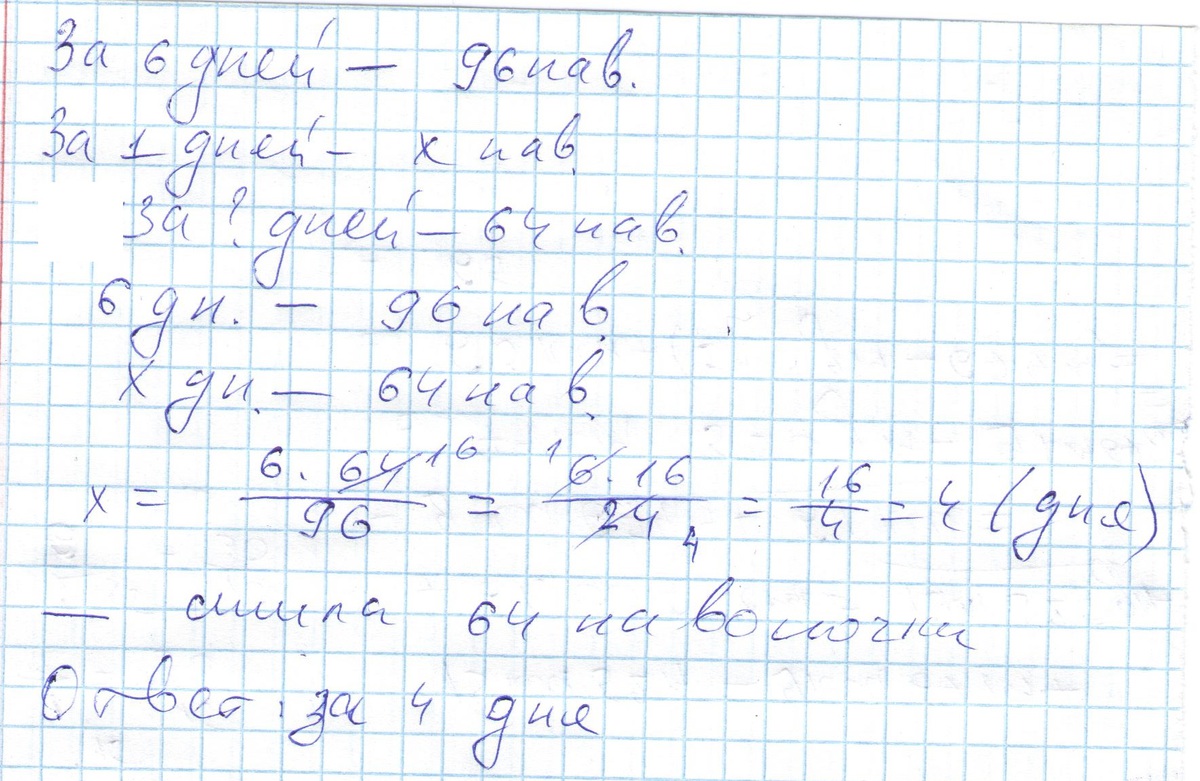 За 6 дней — 96 нав.
За 1 дней — х нав.
За ? дней — 64 нав.
6 дн. — 96 нав.
х дн. — 64 нав.
х = 6 · 64 16 / 96 = 1 6 · 16 / 24 4 = 16 / 4 = 4 (дня)
— сшила 64 наволочки
Ответ: за 4 дня